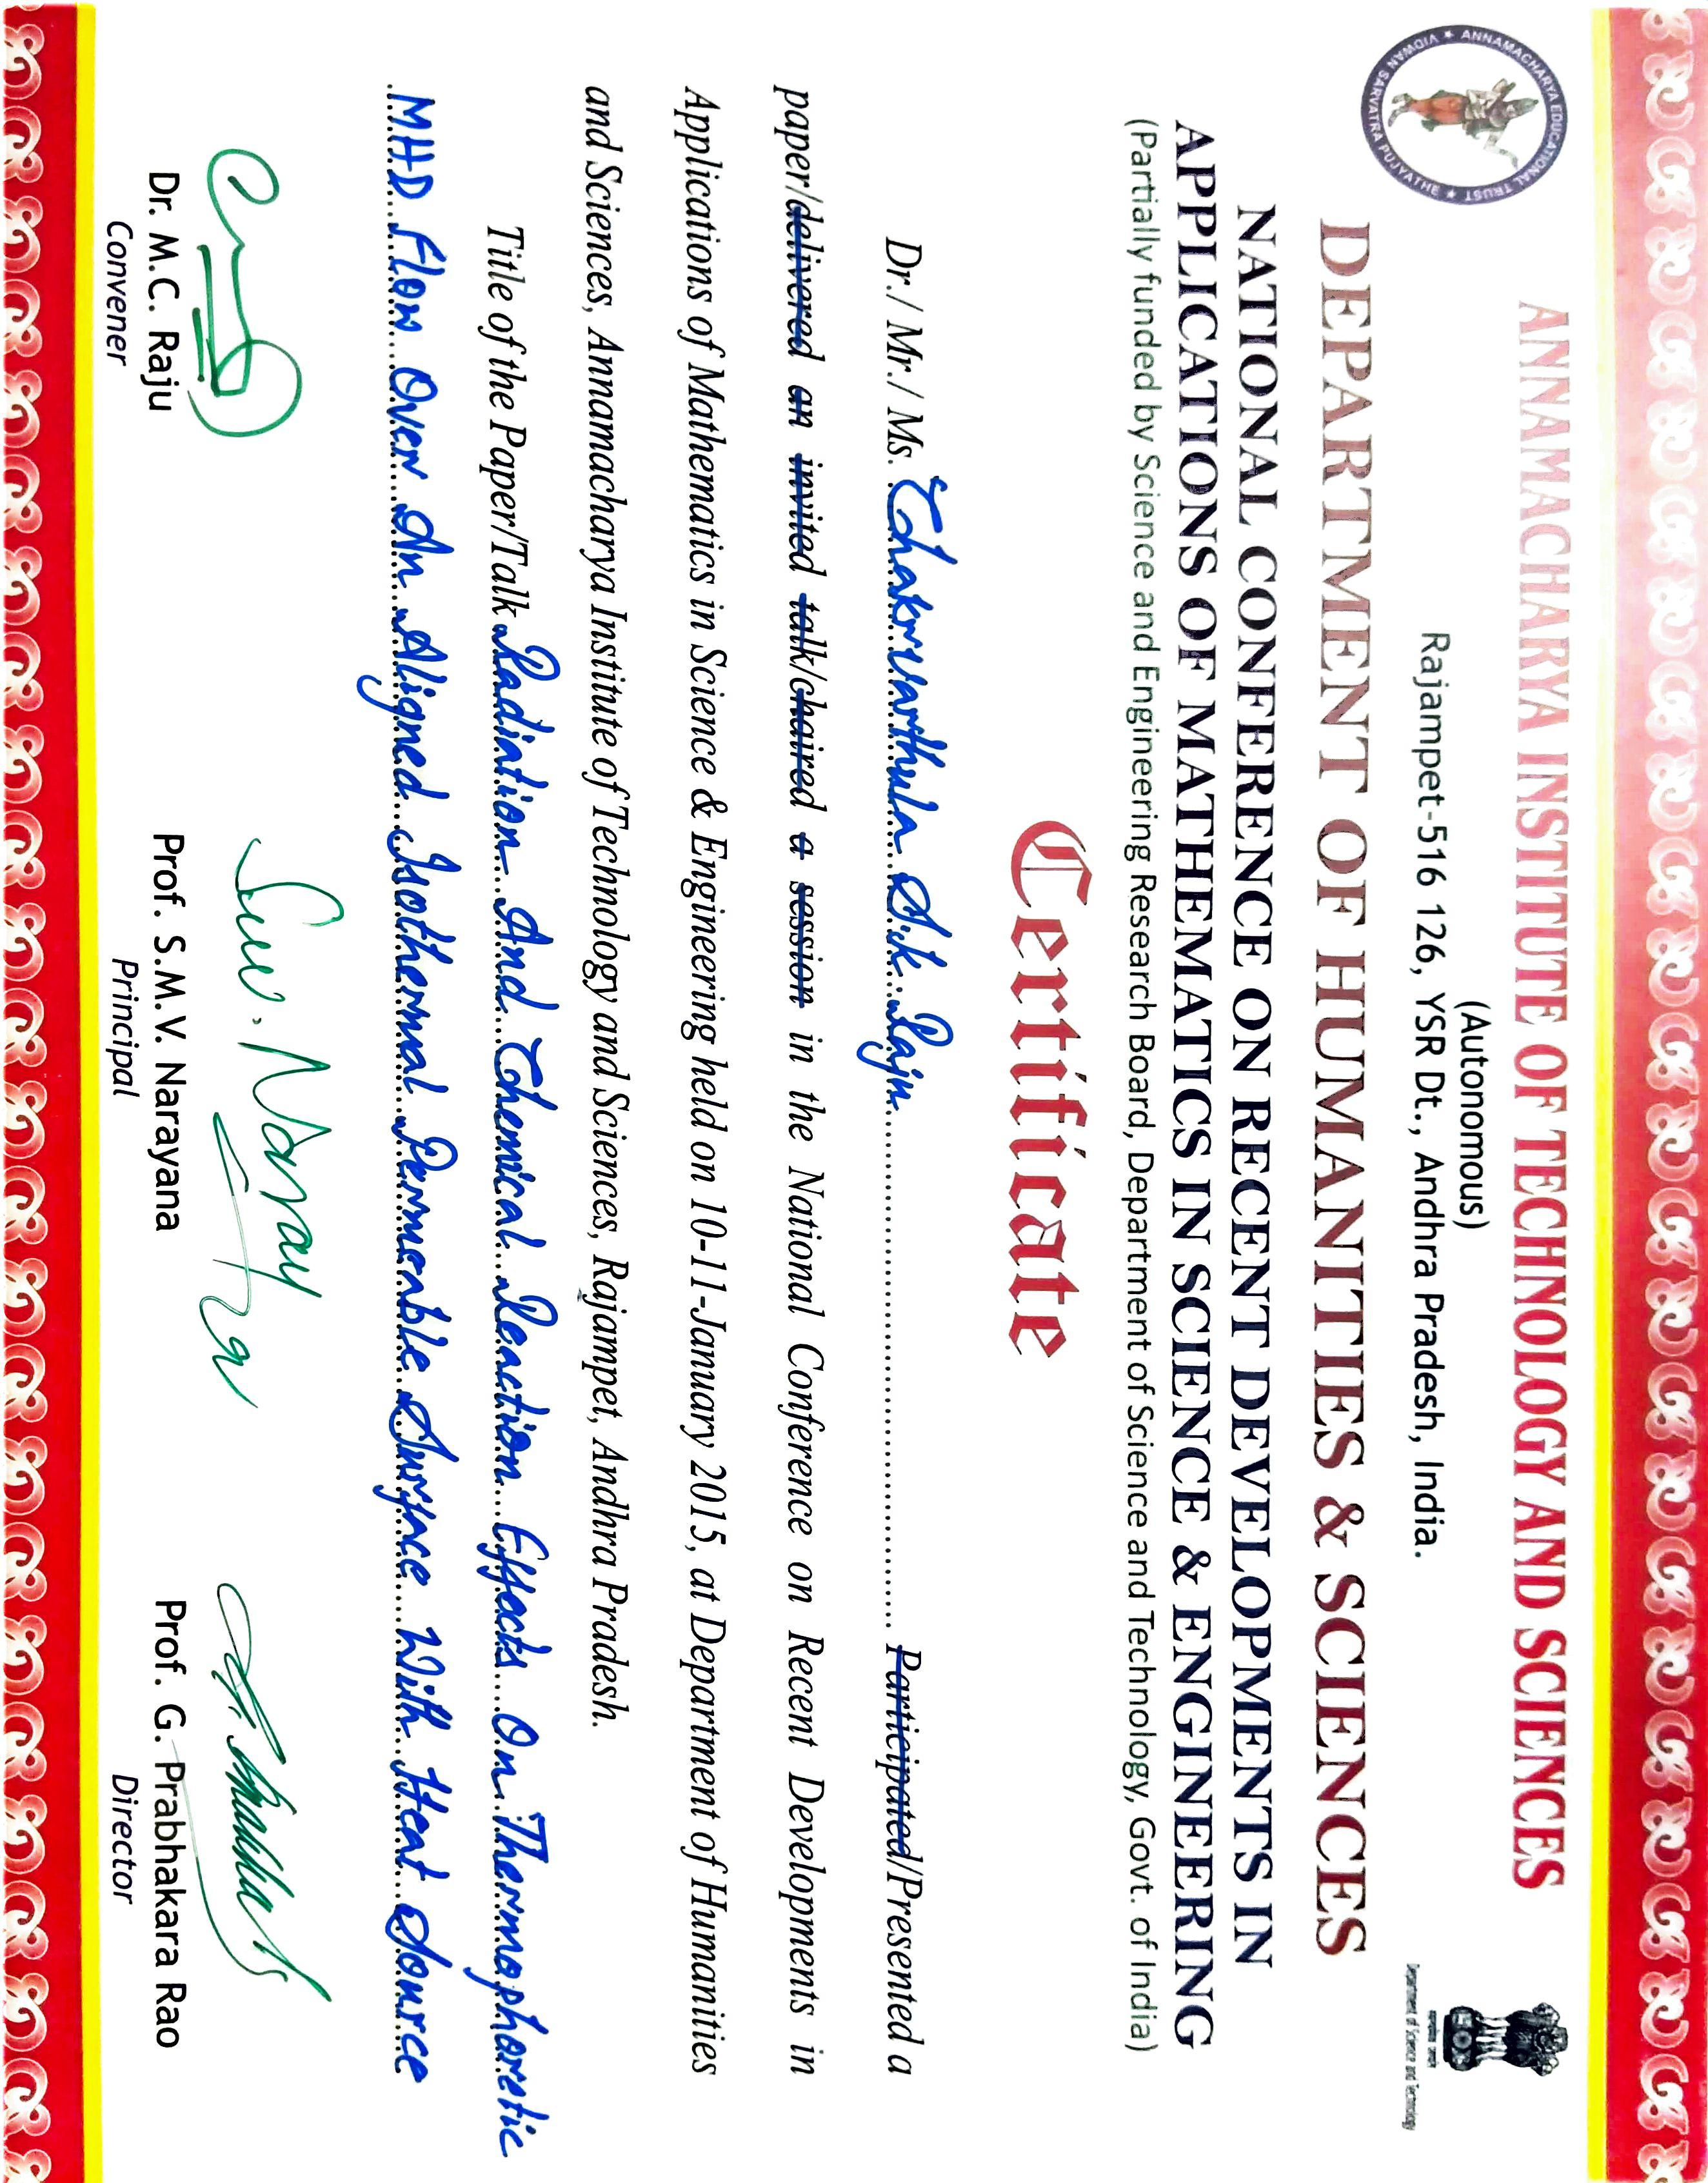 ANNAMACHARYA EDUCATIONAL TRUST ★ VIDWAN SARVATRA PUJYATHE ★
ANNAMACHARYA INSTITUTE OF TECHNOLOGY AND SCIENCES
(Autonomous)
Rajampet-516 126, YSR Dt., Andhra Pradesh, India.
Department of Science and Technology
DEPARTMENT OF HUMANITIES & SCIENCES
NATIONAL CONFERENCE ON RECENT DEVELOPMENTS IN
APPLICATIONS OF MATHEMATICS IN SCIENCE & ENGINEERING
(Partially funded by Science and Engineering Research Board, Department of Science and Technology, Govt. of India)
Certificate
Dr./ Mr./ Ms. Chakravarthula S.K. Raju Participated/Presented a
paper/delivered an invited talk/chaired a session in the National Conference on Recent Developments in
Applications of Mathematics in Science & Engineering held on 10-11-January 2015, at Department of Humanities
and Sciences, Annamacharya Institute of Technology and Sciences, Rajampet, Andhra Pradesh.
Title of the Paper/Talk Radiation And Chemical Reaction Effects On Thermophoretic
MHD Flow Over An Aligned Isothermal Permeable Surface With Heat Source
Dr. M.C. Raju
Convener
Prof. S.M.V. Narayana
Principal
Prof. G. Prabhakara Rao
Director